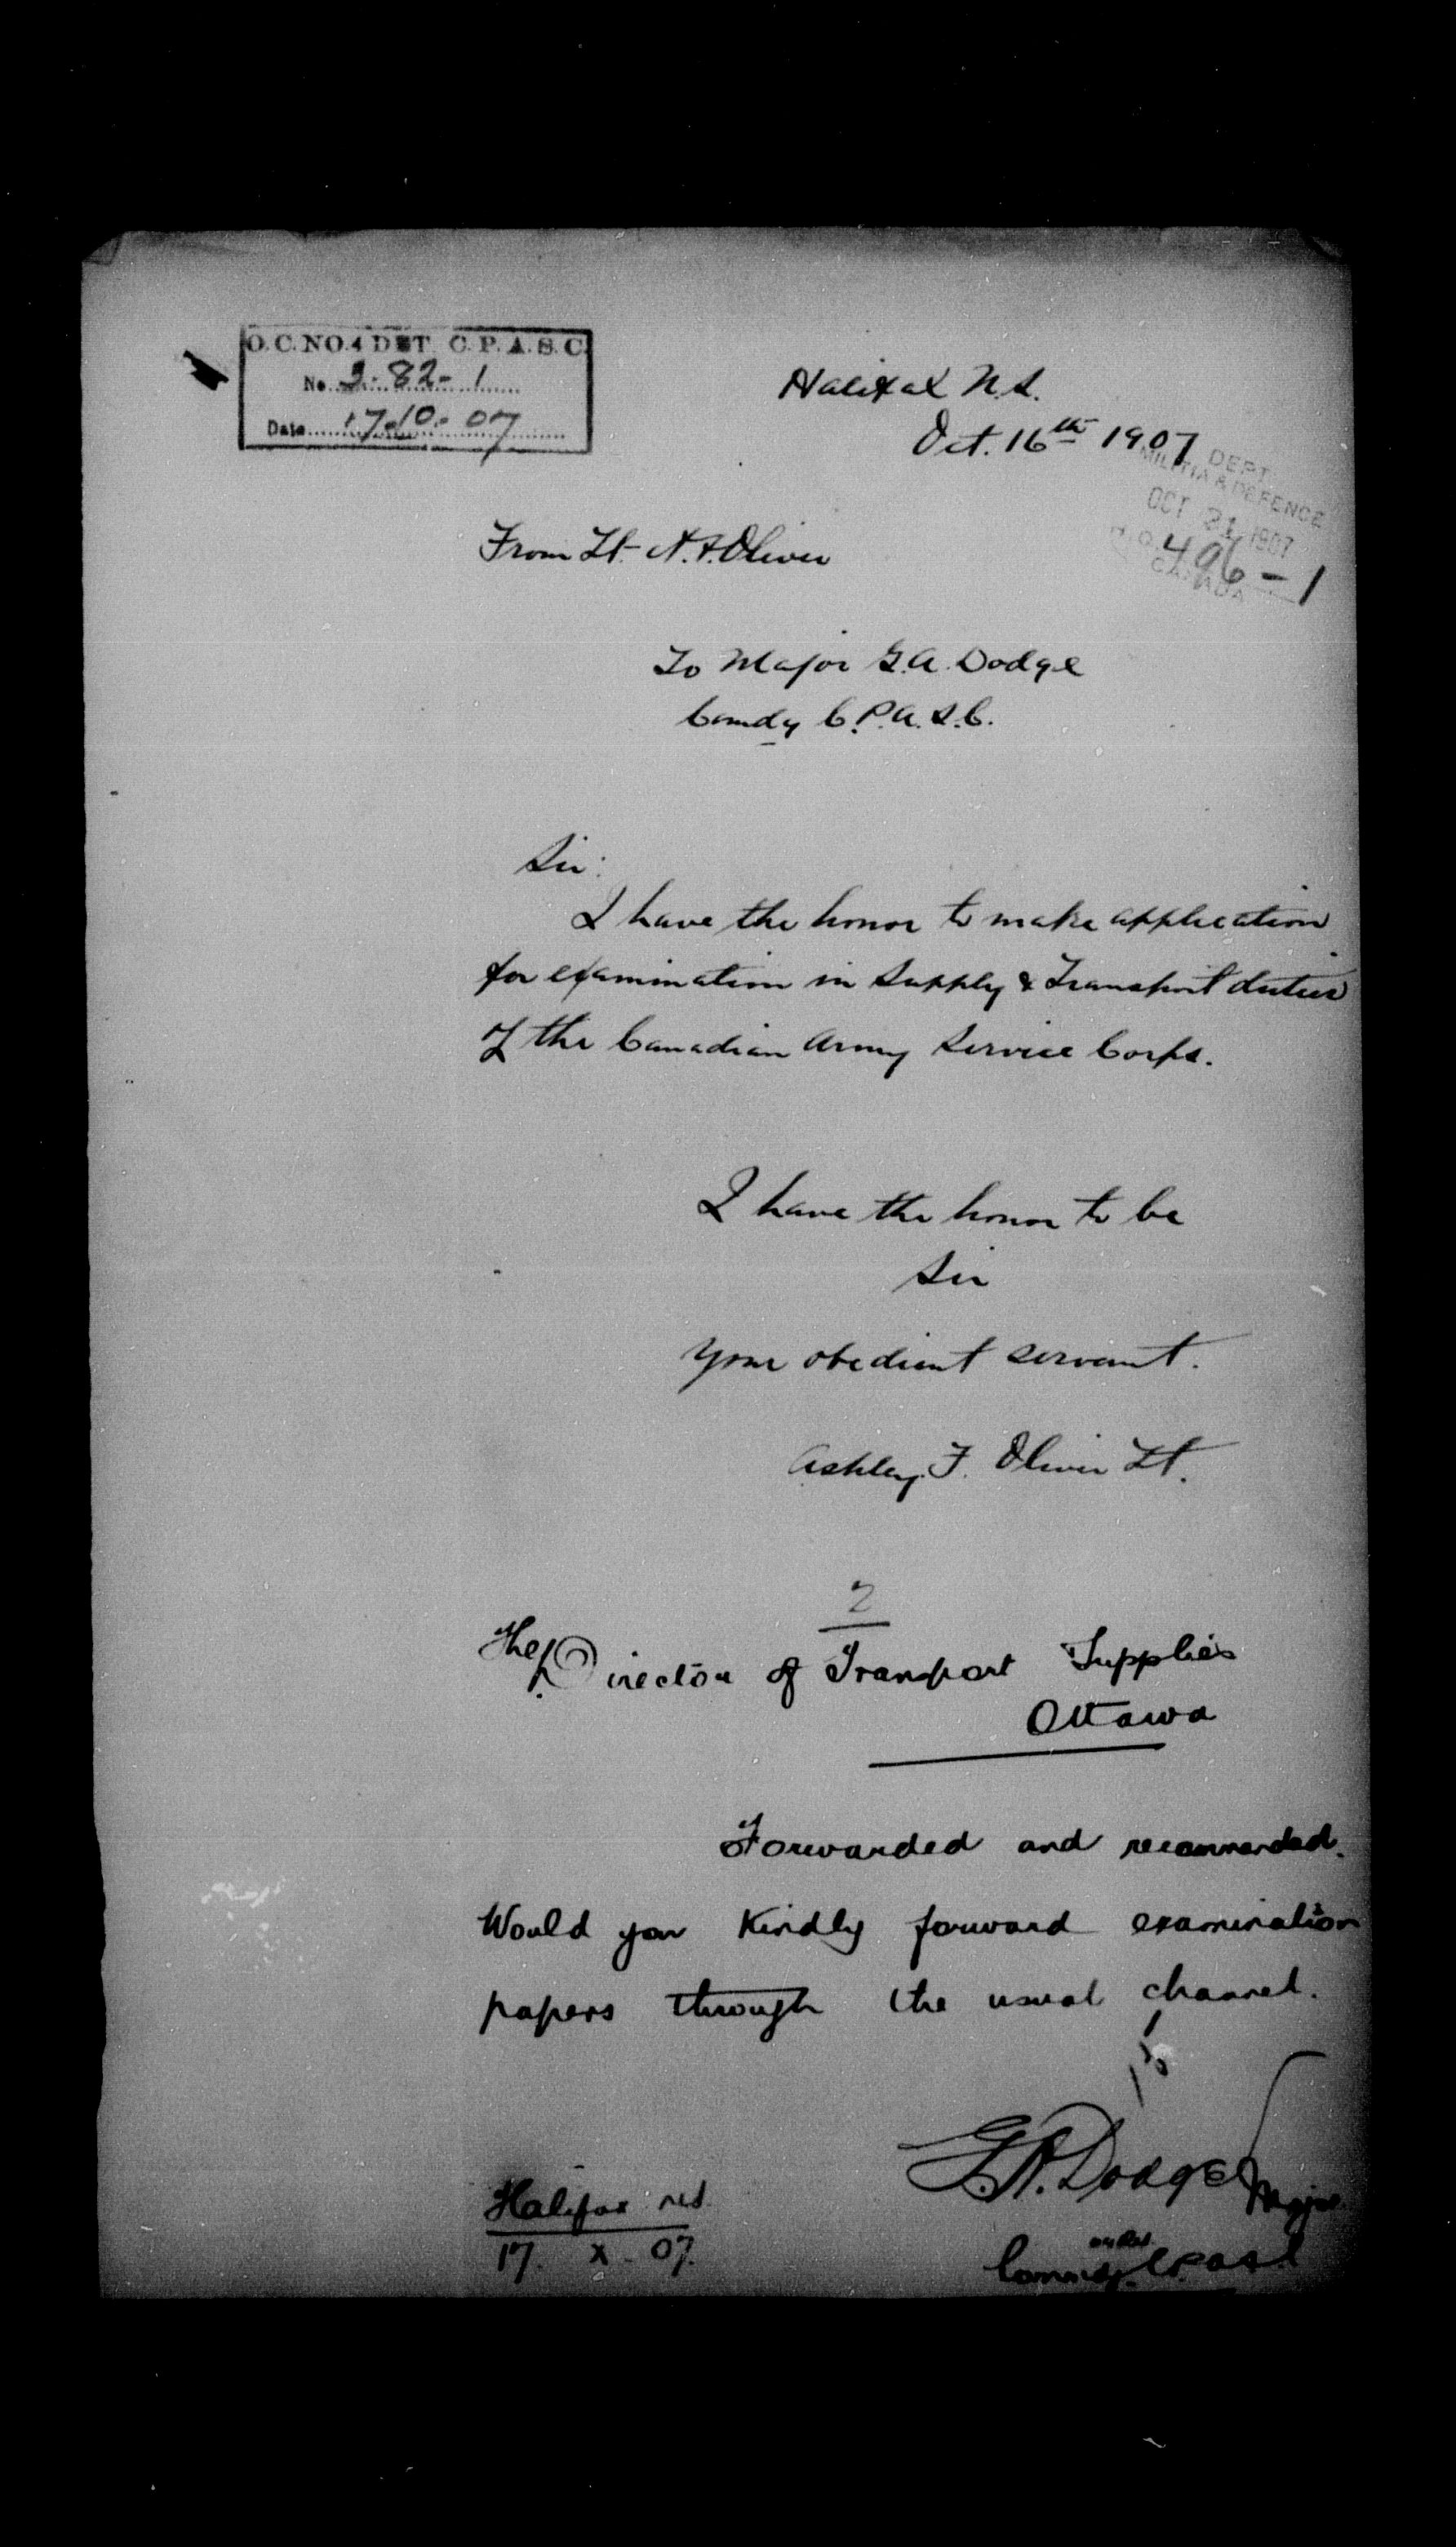 O.C. NO. 4 DET. C.P.A.S.C.
No. 3-82-1
Date 17-10-07
Halifax N.S.
Oct. 16th 1907
DEPT.
MILITIA & DEFENCE
OCT 21 1907
H.Q. 496-1
CANADA
From Lt. A.F. Oliver
To Major G.A. Dodge
Comdg C.P.A.S.C.
Sir:
I have the honor to make application
for examination in Supply & Transport duties
of the Canadian Army Service Corps.
I have the honor to be
Sir
Your obedient servant.
Ashley F. Oliver Lt.
2
The Director of Transport Supplies
Ottawa
Forwarded and recommended.
Would you Kindly forward examination
papers through the usual channel.
G.A. Dodge Major
Halifax NS
17. X. 07.
Commdg. C.P.A.S.C.